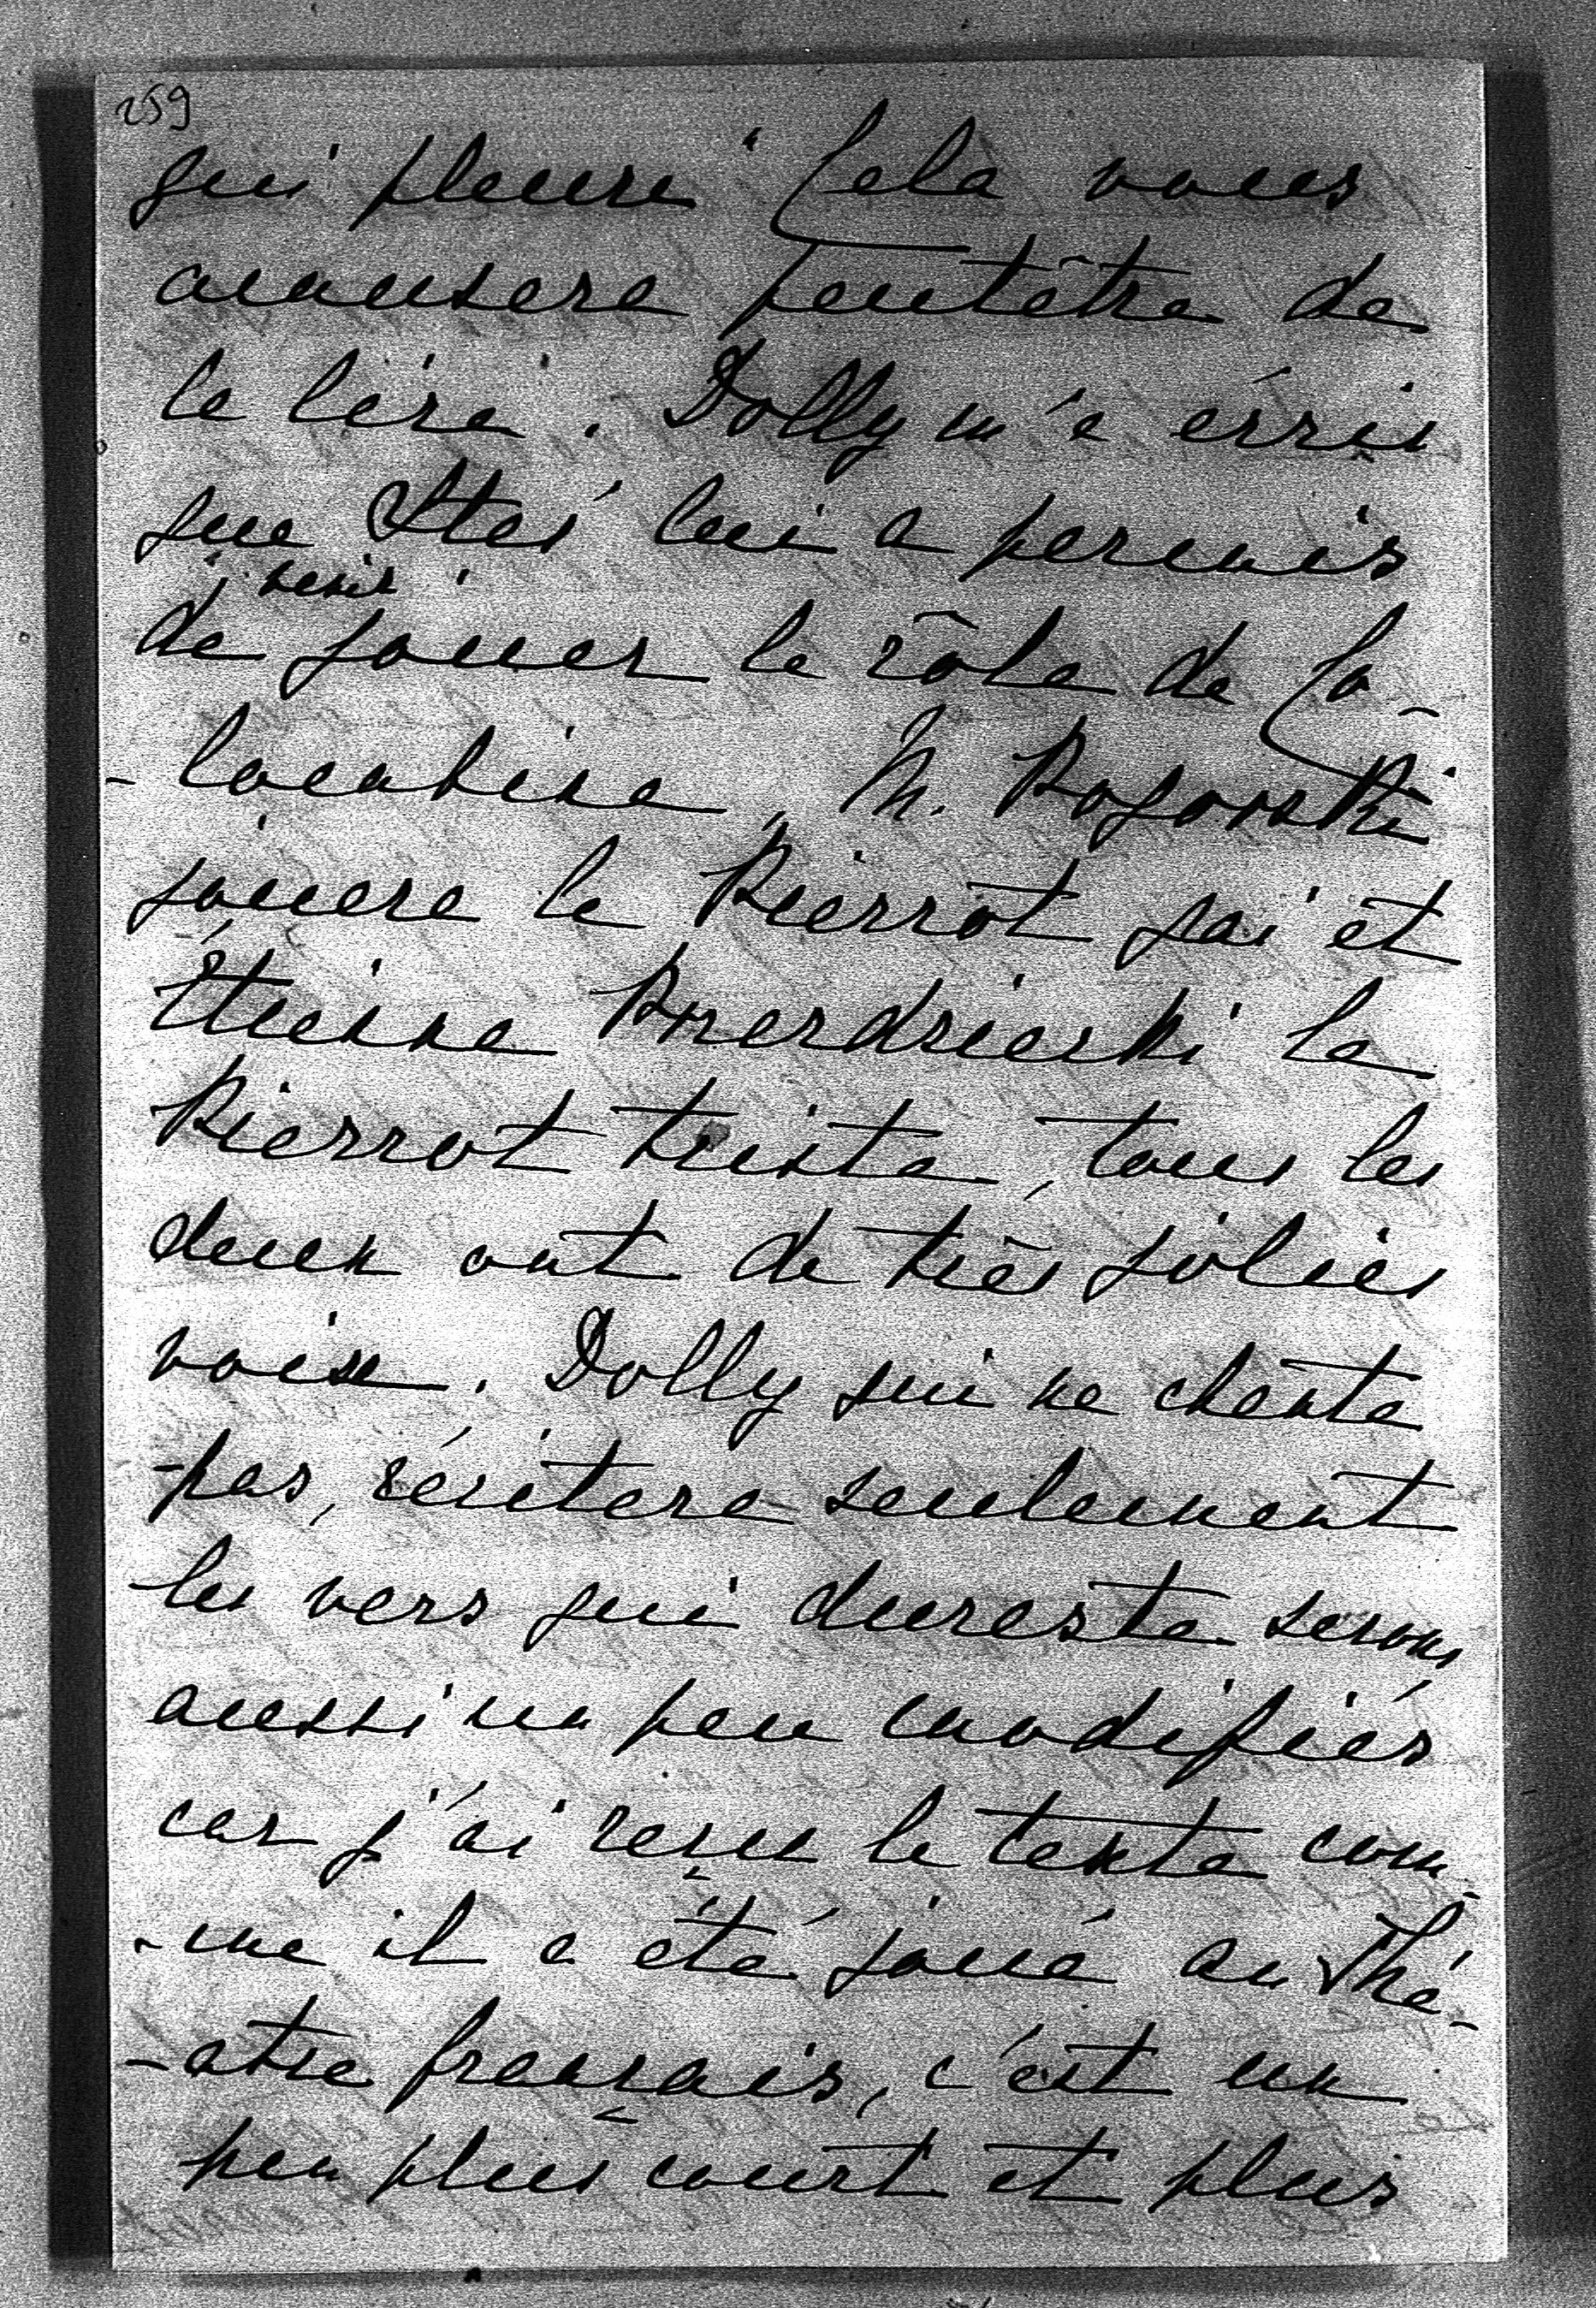 259
qui pleure" Cela vous
amusera peutêtre de
le lire. Dolly m'a écris
que Itei lui a permis
de jouer le rôle de Co-
-lombine, M. Rogowski
jouera le Pierrot gai et
Etienne le
Pierrot triste, tous les
deux ont de très jolies
voix. Dolly qui ne chante
pas, récitera seulement
les vers qui dureste serons
aussi un peu modifiés
car j'ai reçu le texte com-
-me il a été joué au Thé-
-atre français, c'est un
peu plus court et plus